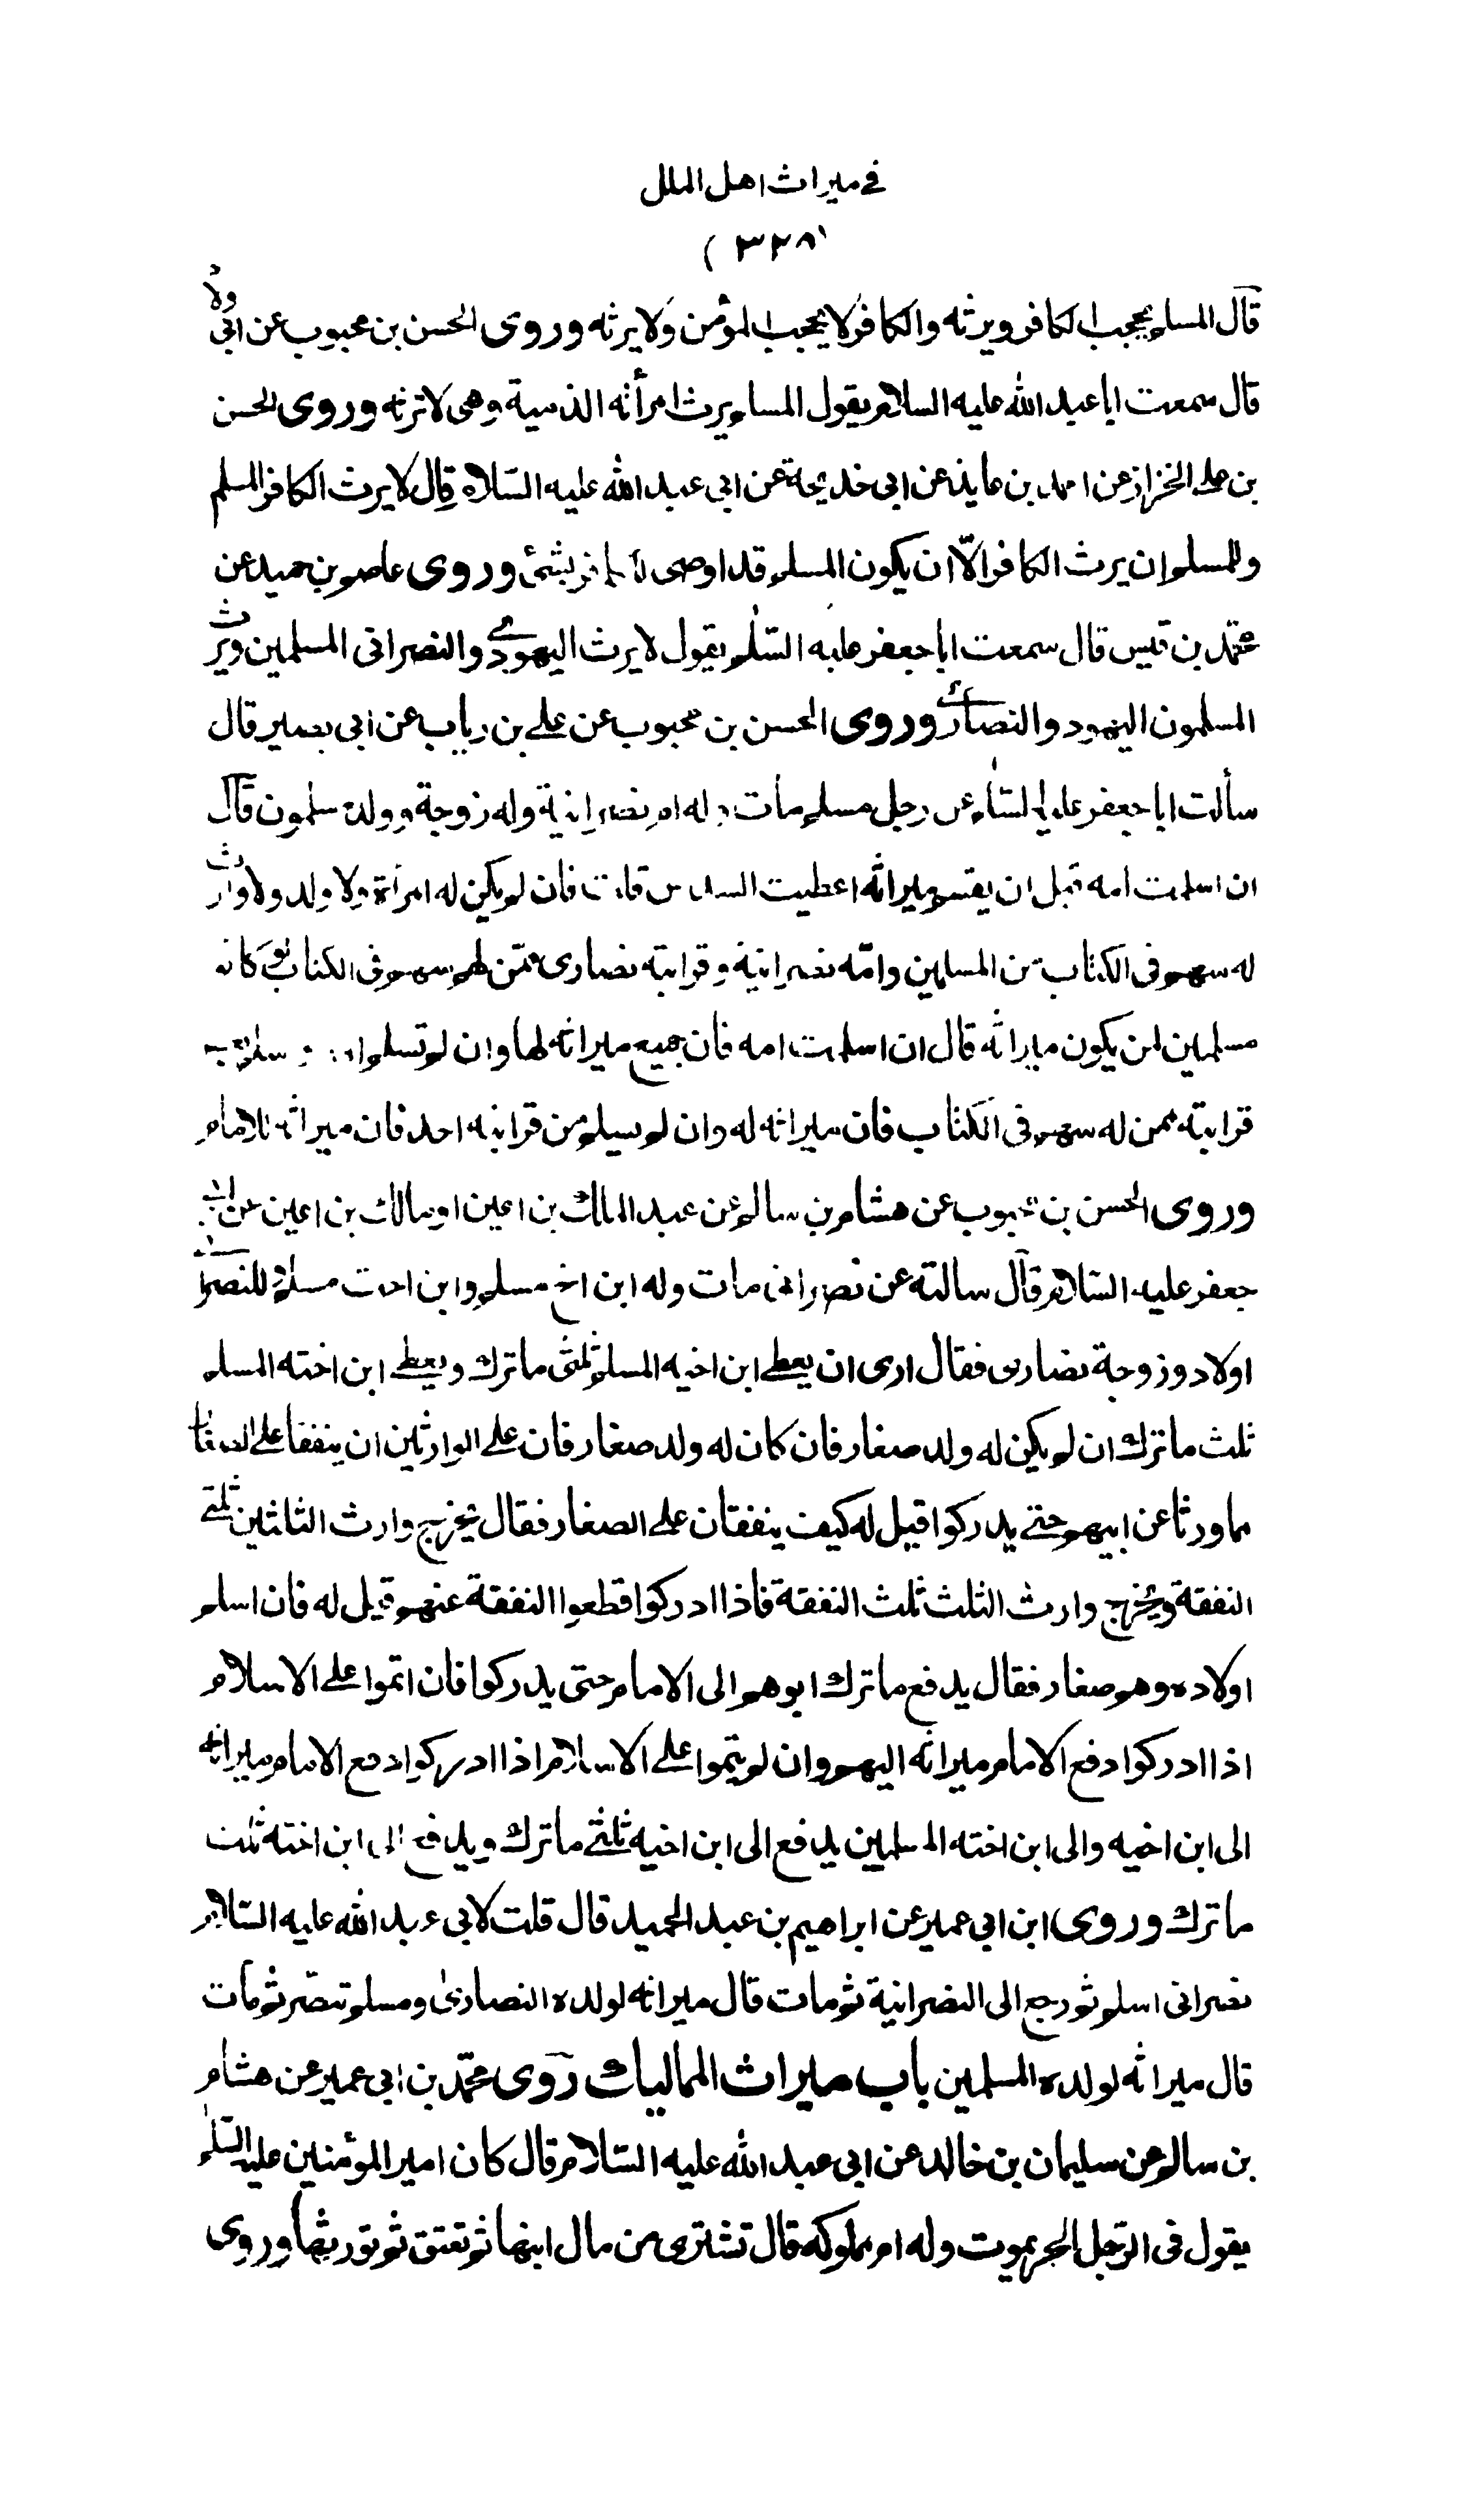 في ميراث اهل الملل
(٣٢٨)
قال المسلم يحجب الكافر ويرثه والكافر لا يحجب المؤمن ولا يرثه وروى الحسن بن محبوب عن ابى ولاد
قال سمعت ابا عبد الله عليه السلام يقول المسلم يرث امرأته الذمية وهى لا ترثه وروى الحسن
بن على الخزاز عن احمد بن عايذ عن ابى خديجة عن ابى عبد الله عليه السلام قال لا يرث الكافر المسلم
وللمسلم ان يرث الكافر الّا ان يكون المسلم قد اوصى للكافر بشئ وروى عاصم بن حميد عن
محمّد بن قيس قال سمعت ابا جعفر عليه السّلم يقول لا يرث اليهودي والنصرانى المسلمين ويرث
المسلمون اليهود والنصارى وروى الحسن بن محبوب عن على بن رياب عن ابى بصير قال
سألت ابا جعفر عليه السّلم عن رجل مسلم مات وله ام نصرانية وله زوجة وولد مسلمون قال
ان اسلمت امه قبل ان يقسم ميراثه اعطيت السدس قلت فان لم يكن له امرأة ولا ولد ولا وارث
له سهم فى الكتاب من المسلمين وامّه نصرانية وقرابته نصارى ممّن لهم سهم فى الكتاب لو كانوا
مسلمين لمن يكون ميراثه قال ان اسلمت امه فان جميع ميراثه لها وان لم تسلم امه و اسلم بعض
قرابته ممن له سهم فى الكتاب فان ميراثه له وان لم يسلم من قرابته احد فان ميراثه للامام
وروى الحسن بن محبوب عن هشام بن سالم عن عبد الملك بن اعين او مالك بن اعين عن ابى
جعفر عليه السّلام قال سالته عن نصرانى مات وله ابن اخ مسلم وابن اخت مسلم وللنصرانى
اولاد وزوجة نصارى فقال ارى ان يعطى ابن اخيه المسلم ثلثى ما ترك ويعطى ابن اخته المسلم
ثلث ما ترك ان لم يكن له ولد صغار فان كان له ولد صغار فان على الوارثين ان ينفقا على الصغار
مما ورثا عن ابيهم حتى يدركوا قيل له كيف ينفقان على الصغار فقال يخرج وارث الثلثين ثلثى
النفقة ويخرج وارث الثلث ثلث النفقة فاذا ادركوا قطعوا النفقة عنهم قيل له فان اسلم
اولاده وهم صغار فقال يدفع ما ترك ابوهم الى الامام حتى يدركوا فان اتموا على الاسلام
اذا ادركوا دفع الامام ميراثه اليهم وان لم يتموا على الاسلام اذا ادركوا دفع الامام ميراثه
الى ابن اخيه والى ابن اخته المسلمين يدفع الى ابن اخيه ثلثى ما ترك ويدفع الى ابن اخته ثلث
ما ترك وروى ابن ابي عمير عن ابراهيم بن عبد الحميد قال قلت لابى عبد الله عليه السّلام
نصرانى اسلم ثم رجع الى النصرانية ثم مات قال ميراثه لولده النصارى ومسلم تنصّر ثم مات
قال ميراثه لولده المسلمين باب ميراث المماليك روى محمّد بن ابى عمير عن هشام
بن سالم عن سليمان بن خالد عن ابى عبد الله عليه السّلام قال كان امير المؤمنين عليه السّلم
يقول فى الرّجل الحر يموت وله ام مملوكه قال تشترى من مال ابنها ثم تعتق ثم تورثها وروى